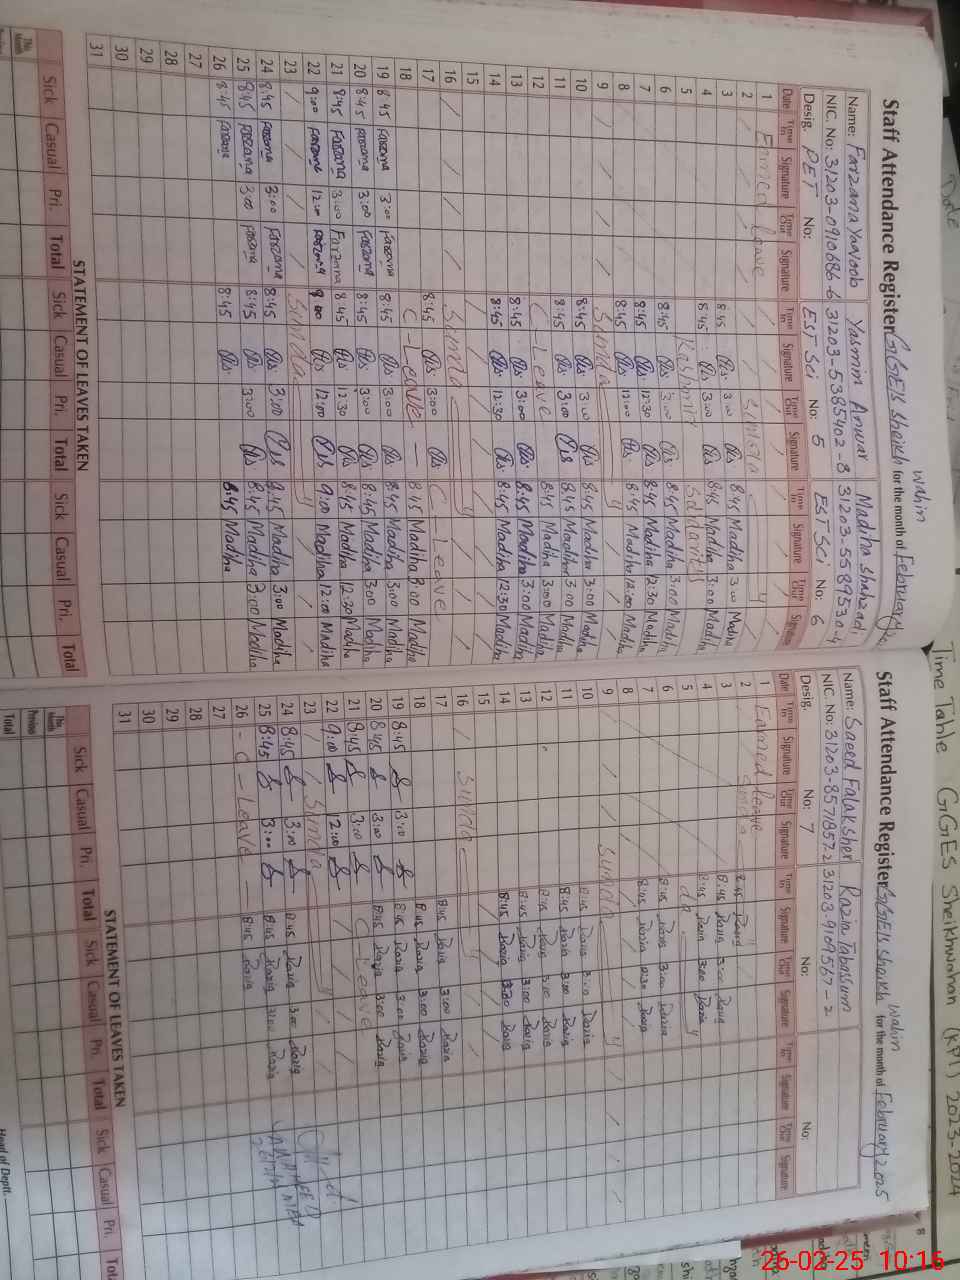 Time Table GGES Sheikhwahan (KPI) 2023-2024
Date
Staff Attendance Register GGEls Sheikh wahin for the month of February
Name: Farzana Yaqoob Yasmin Anwar Madiha Shahzadi
NIC. No: 31203-0910686-6 31203-5385402-8 31203-5589530-4
Desig. PET No: EST Sci No: 5 EST Sci No: 6
Date Time In Signature Time Out Signature Time In Signature Time Out Signature Time In Signature Time Out Signature
1 Earned leave
2 Sunday
3 8:45 3:00 8:45 Madiha 3:00 Madiha
4 8:45 3:00 8:45 Madiha 3:00 Madiha
5 Kashmir Solidarity
6 8:45 3:00 8:45 Madiha 3:00 Madiha
7 8:45 12:30 8:45 Madiha 12:30 Madiha
8 8:45 12:00 8:45 Madiha 12:00 Madiha
9 Sunda
10 8:45 3:00 8:45 Madiha 3:00 Madiha
11 8:45 3:00 8:45 Madiha 3:00 Madiha
12 C-Leave 8:45 Madiha 3:00 Madiha
13 8:45 3:00 8:45 Madiha 3:00 Madiha
14 8:45 12:30 8:45 Madiha 12:30 Madiha
15
16 Sunda
17 8:45 3:00 C-Leave
18 C-Leave 8:45 Madiha 3:00 Madiha
19 8:45 Farzana 3:00 Farzana 8:45 3:00 8:45 Madiha 3:00 Madiha
20 8:45 Farzana 3:00 Farzana 8:45 3:00 8:45 Madiha 3:00 Madiha
21 8:45 Farzana 3:00 Farzana 8:45 12:30 8:45 Madiha 12:30 Madiha
22 9:00 Farzana 12:00 Farzana 9:00 12:00 9:00 Madiha 12:00 Madiha
23 Sunda
24 8:45 Farzana 3:00 Farzana 8:45 3:00 8:45 Madiha 3:00 Madiha
25 8:45 Farzana 3:00 Farzana 8:45 3:00 8:45 Madiha 3:00 Madiha
26 8:45 Farzana 8:45 8:45 Madiha
27
28
29
30
31
STATEMENT OF LEAVES TAKEN
Sick Casual Pri. Total Sick Casual Pri. Total Sick Casual Pri. Total
This Month
Staff Attendance Register GGEls Sheikh wahin for the month of February 2025
Name: Saeed Falaksher Razia Tabassum
NIC. No: 31203-8571857-2 31203-9109567-2
Desig. No: 7 No: No:
Date Time In Signature Time Out Signature Time In Signature Time Out Signature Time In Signature Time Out Signature
1 Earned leave
2 Sunda
3 8:45 Razia 3:00 Razia
4 8:45 Razia 3:00 Razia
5
6 8:45 Razia 3:00 Razia
7 8:45 Razia 12:30 Razia
8
9 Sunda
10 8:45 Razia 3:00 Razia
11 8:45 Razia 3:00 Razia
12 8:45 Razia 3:00 Razia
13 8:45 Razia 3:00 Razia
14 8:45 Razia Razia
15
16 Sunda
17 8:45 Razia 3:00 Razia
18 8:45 Razia 3:00 Razia
19 8:45 3:00 8:45 Razia 3:00 Razia
20 8:45 3:00 8:45 Razia 3:00 Razia
21 8:45 3:00 C Leave
22 9:00 12:00
23 Sunda
24 8:45 3:00 8:45 Razia 3:00 Razia
25 8:45 3:00 8:45 Razia 3:00 Razia
26 - C - Leave - 8:45 Razia
27
28
29
30
31
STATEMENT OF LEAVES TAKEN
Sick Casual Pri. Total Sick Casual Pri. Total Sick Casual Pri. Total
This Month
Previous
Total
Head of Deptt.
26-02-25 10:16